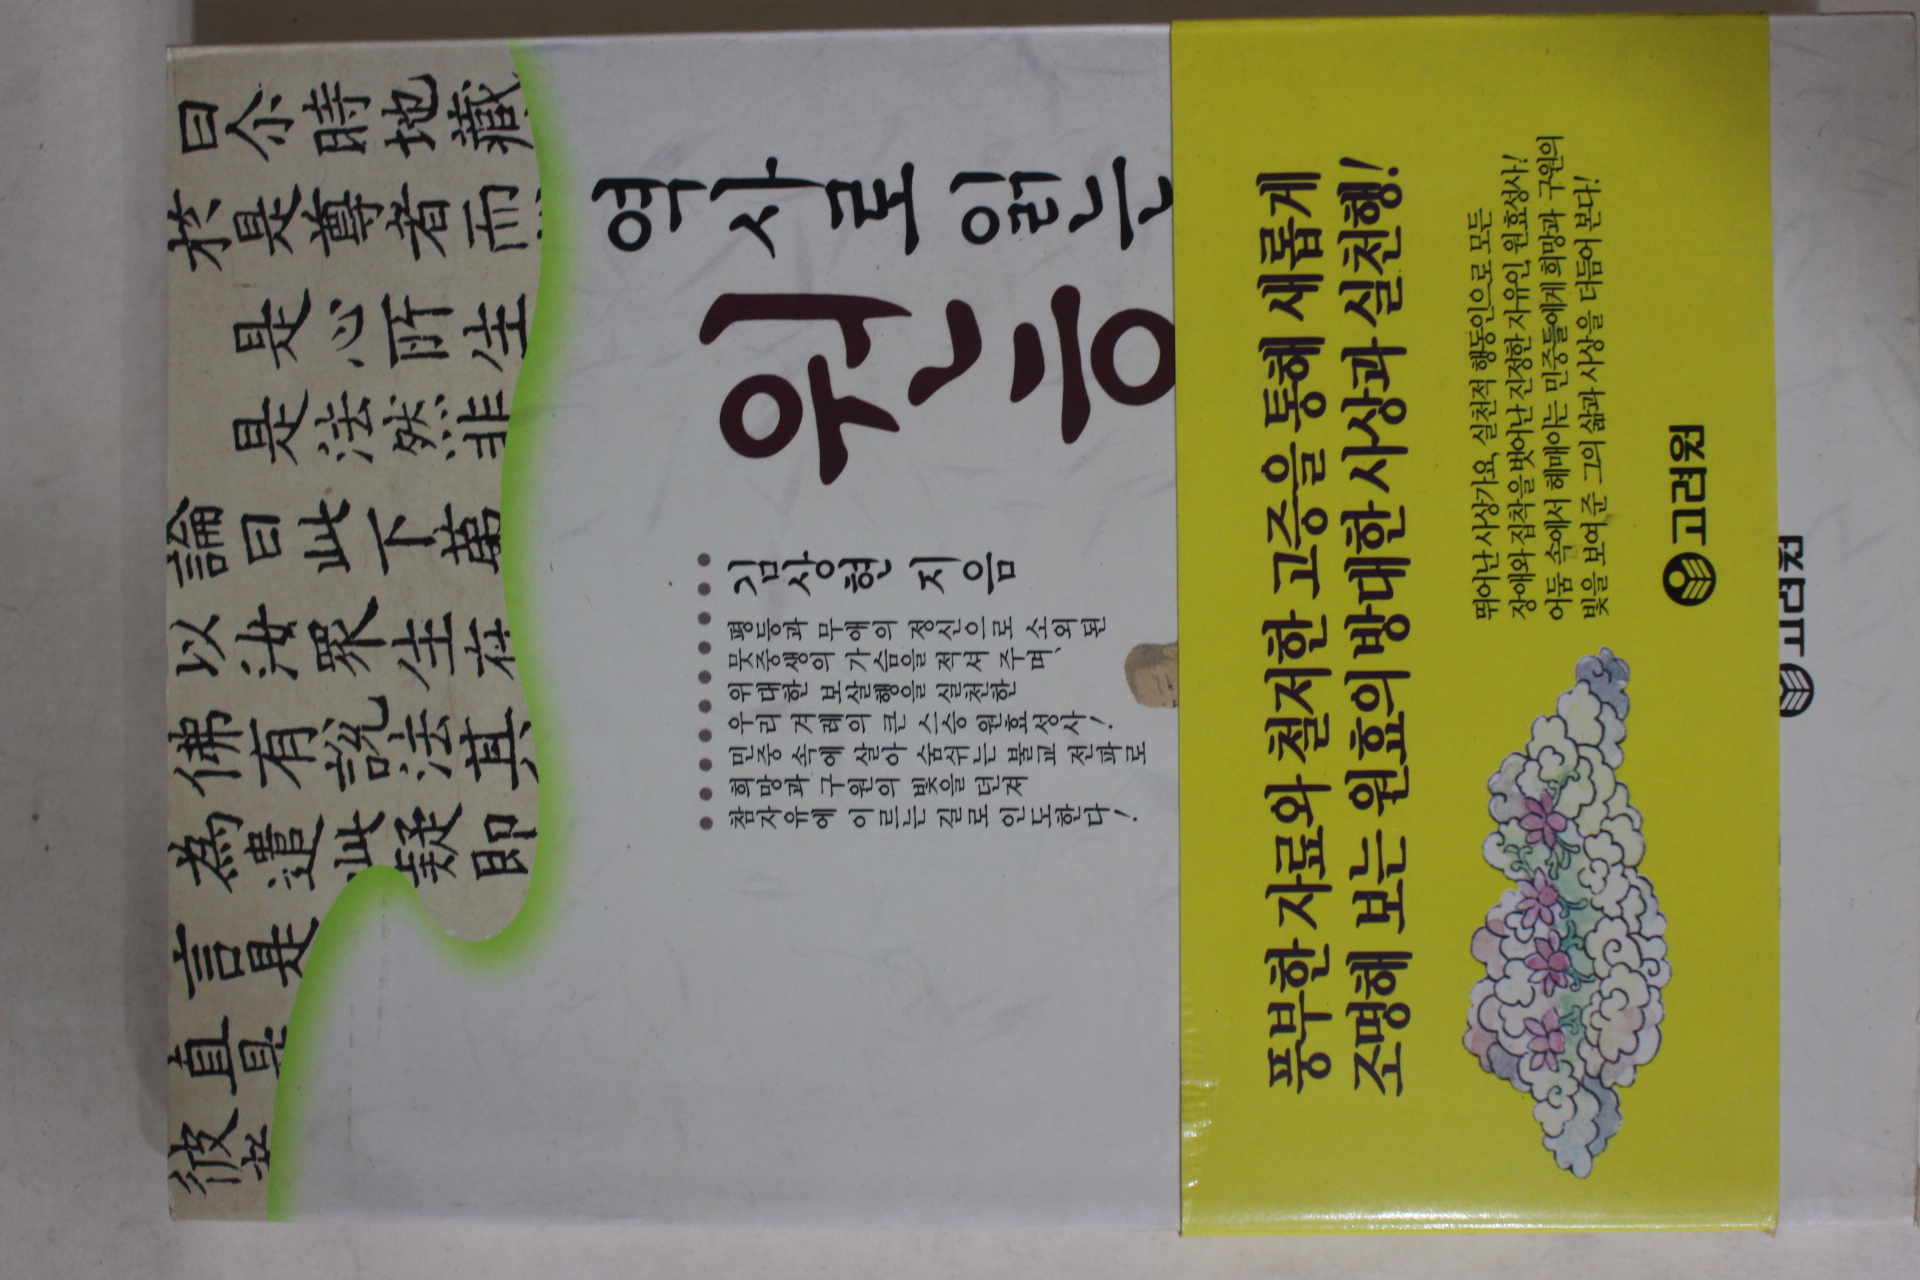 曰尒時地藏
於是尊者而
是心所生
是法然非
論曰此下萬
以汝眾生在
佛有說法其
為遣此疑即
言是
直是
彼
역사로 읽는
원
김상현 지음
평등과 무애의 정신으로 소외된
뭇중생의 가슴을 적셔 주며,
위대한 보살행을 실천한
우리 겨레의 큰 스승 원효성사!
민중 속에 살아 숨쉬는 불교 전파로
희망과 구원의 빛을 던져
참자유에 이르는 길로 인도한다!
풍부한 자료와 철저한 고증을 통해 새롭게
조명해 보는 원효의 방대한 사상과 실천행!
뛰어난 사상가요, 실천적 행동인으로 모든
장애와 집착을 벗어난 진정한 자유인, 원효성사!
어둠 속에서 헤매이는 민중들에게 희망과 구원의
빛을 보여 준 그의 삶과 사상을 더듬어 본다!
고려원
고려원